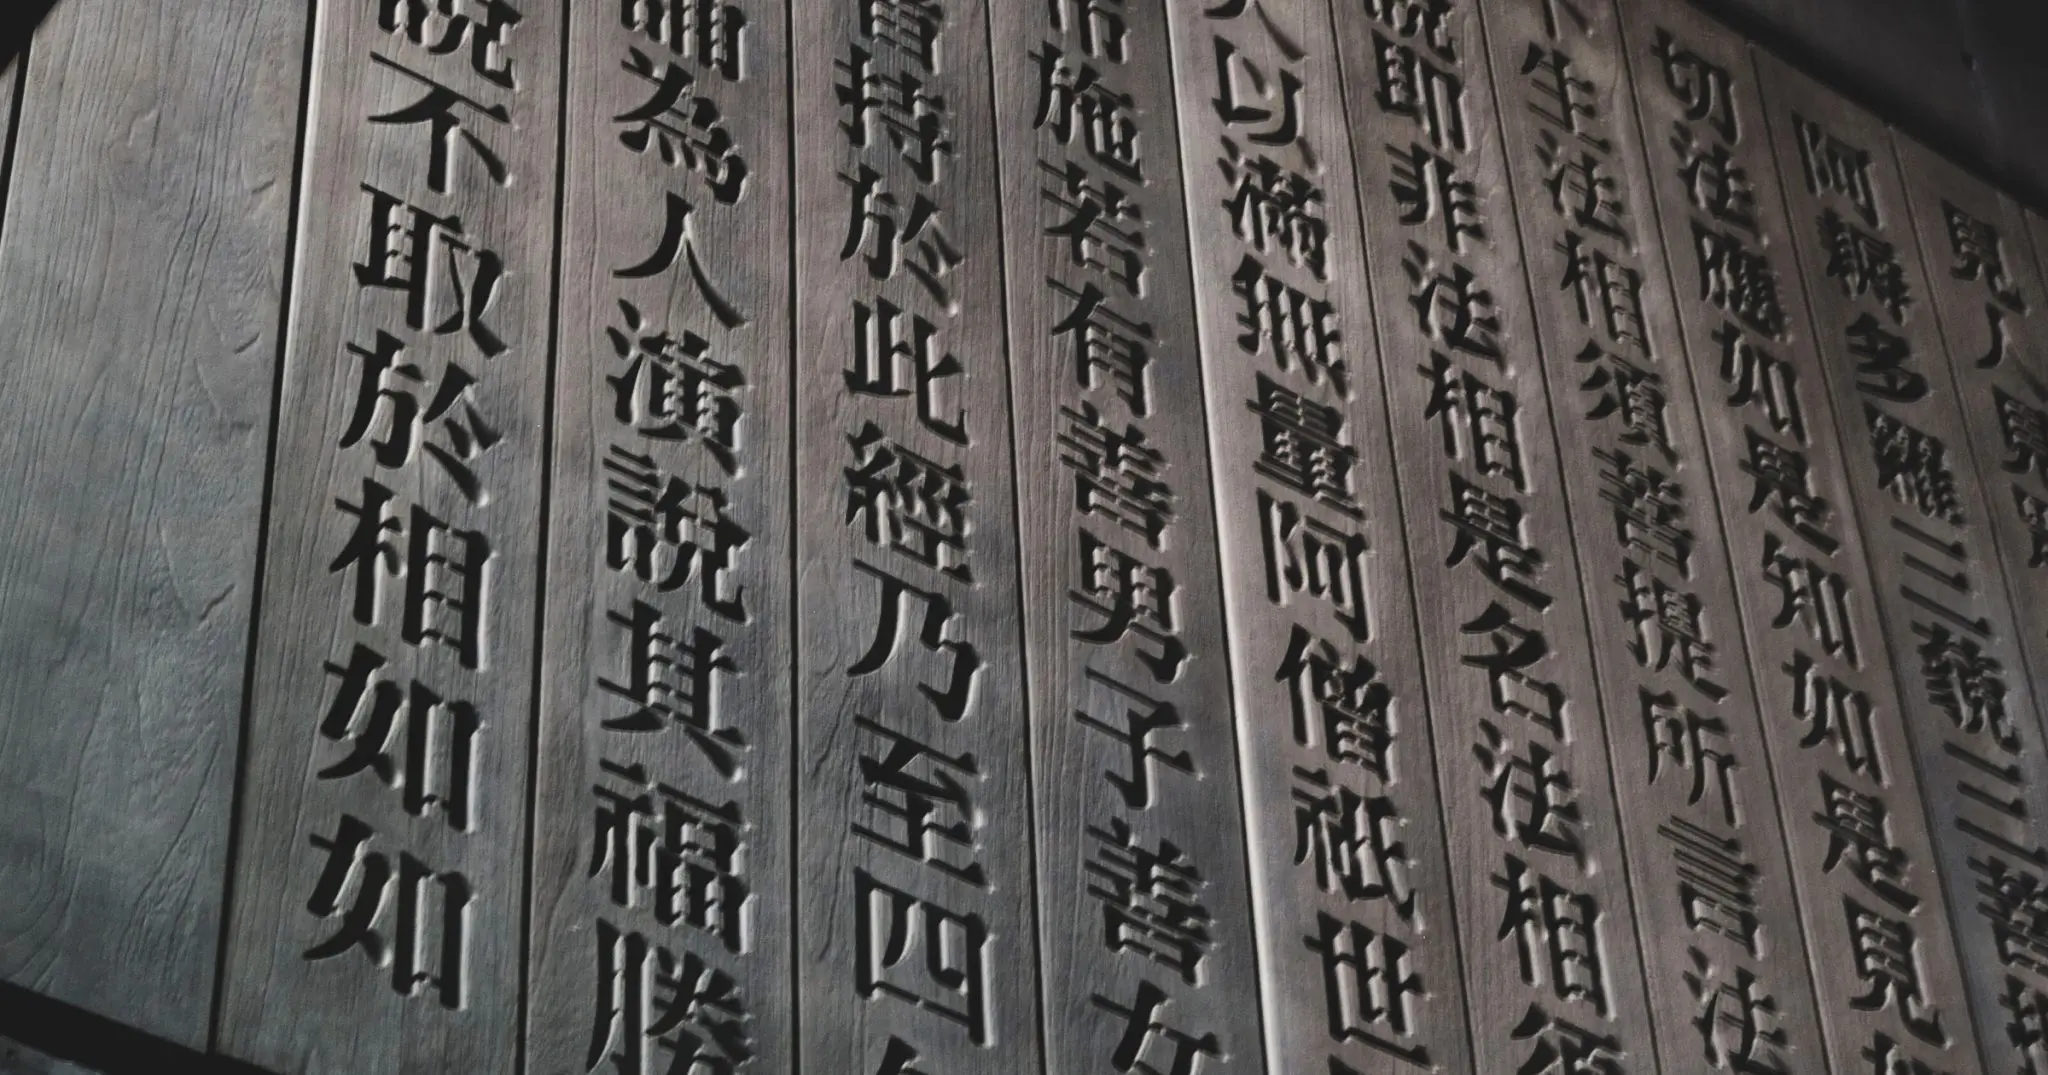 見人見
阿耨多羅三藐三菩提
切法應如是知如是見如
不生法相須菩提所言法
說即非法相是名法相須
人以滿無量阿僧祇世
布施若有善男子善女
持於此經乃至四
誦為人演說其福勝
說不取於相如如